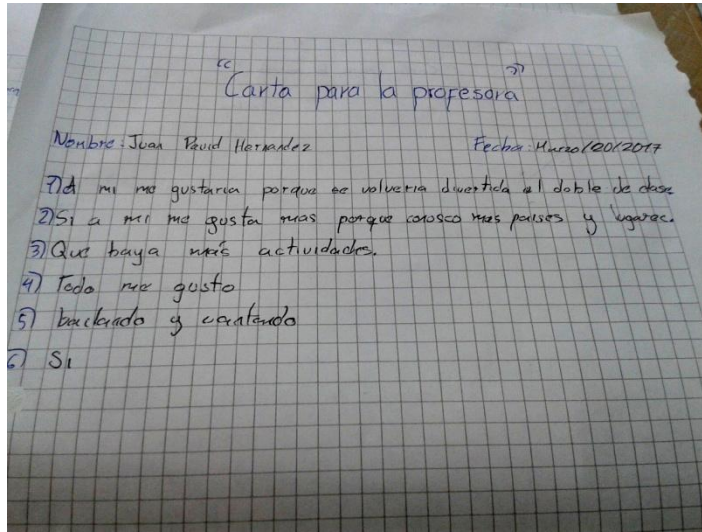 "Carta para la profesora"
Nombre: Juan David Hernandez Fecha: Marzo/20/2017
1) A mi me gustaria porque se volveria divertida al doble de clase
2) Si a mi me gusta mas porque conosco mas paises y lugares.
3) Que haya más actividades.
4) Todo me gusto
5) bailando y cantando
6) Si